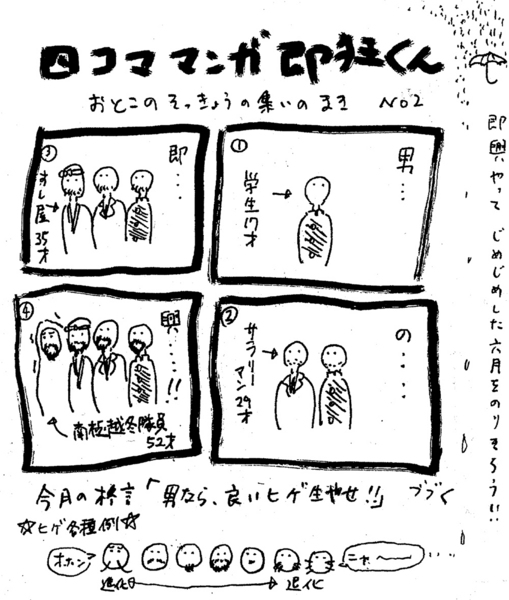 四コママンガ 即狂くん
おとこのそっきょうの集いのまき No2
即興やって じめじめした六月をのりきろう!!
①
男...
学生17才
②
の....
サラリーマン29才
③
即...
すし屋35才
④
興....!!
南極越冬隊員
52才
今月の格言「男なら、良いヒゲ生やせ!!」 つづく
☆ヒゲ各種例☆
オホン
ニャ〜
進化
退化